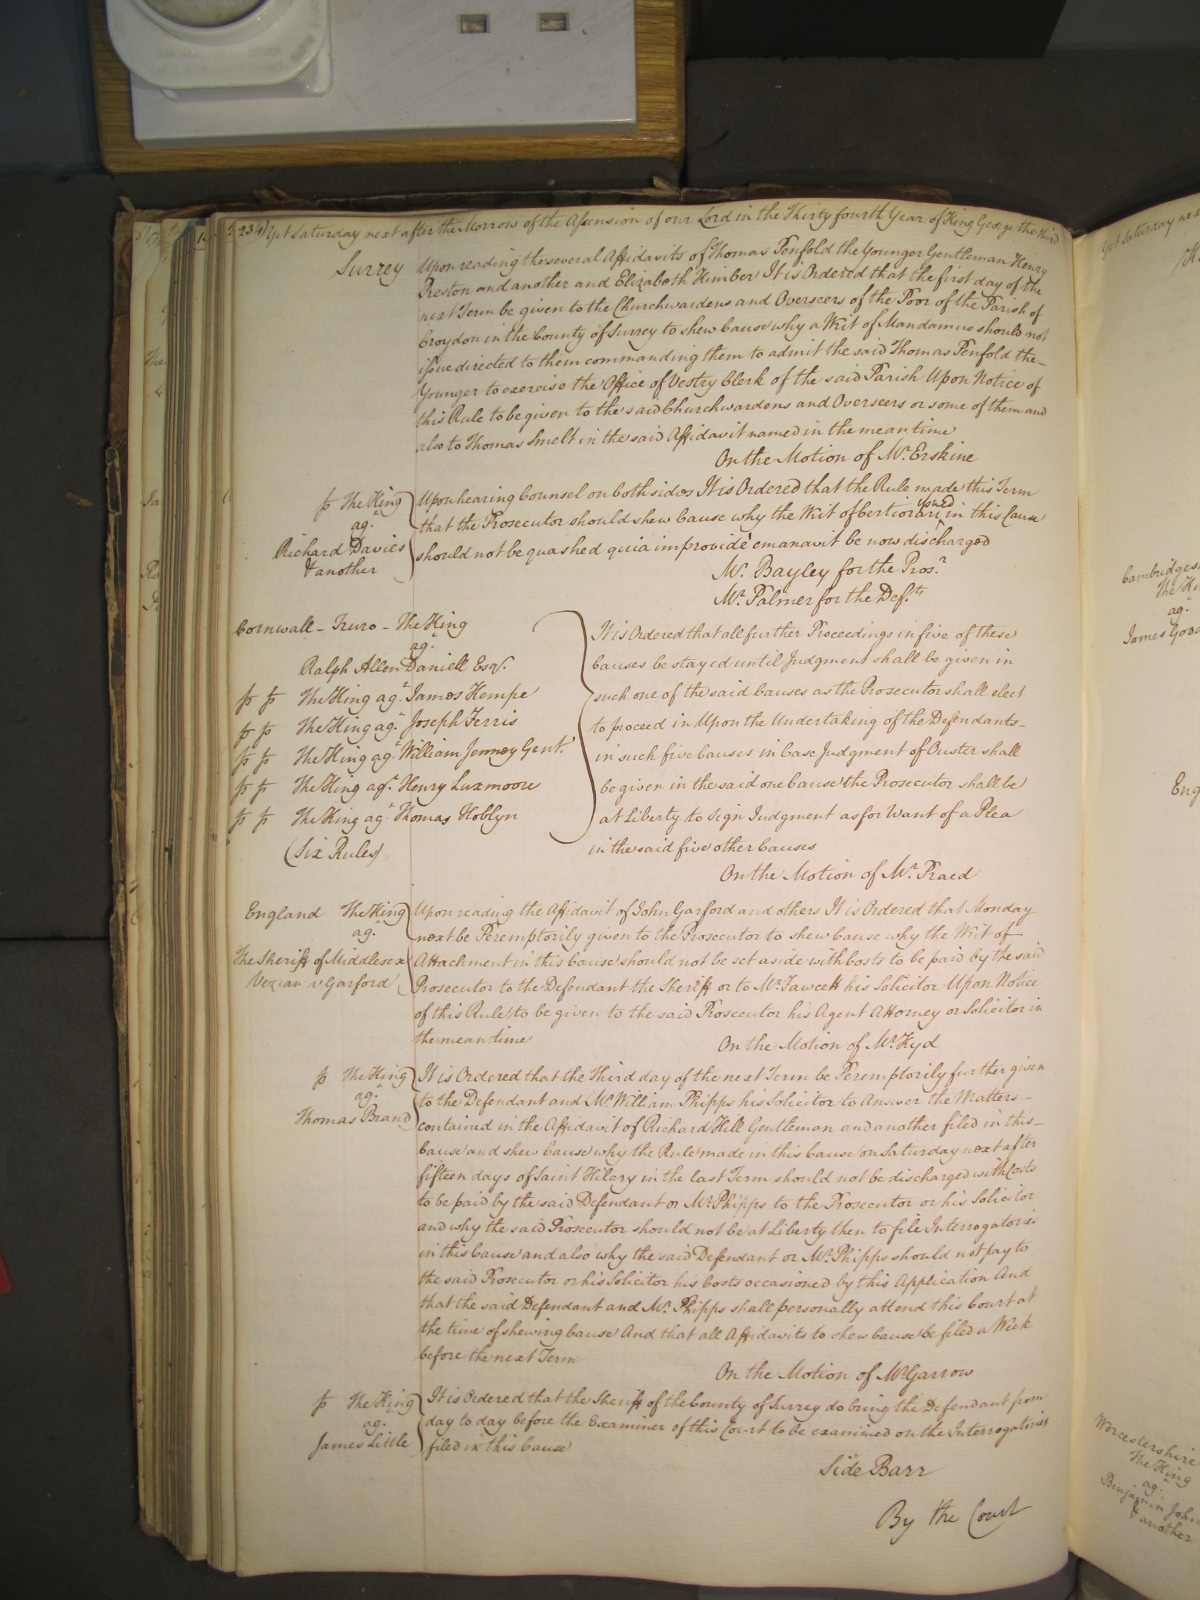 234) Yet Saturday next after the Morrow of the Ascension of our Lord in the Thirty fourth Year of King George the third
Surrey Upon reading the several Affidavits of Thomas Penfold the Younger Gentleman Henry
Preston and another and Elizabeth Kimber It is Ordered that the first day of the
next Term be given to the Churchwardens and Overseers of the Poor of the Parish of
Croydon in the County of Surrey to shew Cause why a Writ of Mandamus should not
issue directed to them commanding them to admit the said Thomas Penfold the
Younger to exercise the Office of Vestry Clerk of the said Parish Upon Notice of
this Rule to be given to the said Churchwardens and Overseers or some of them and
also to Thomas Smelt in the said Affidavit named in the mean time
On the Motion of Mr. Erskine
p The King
agt.
Richard Davies
& another
Upon hearing Counsel on both sides It is Ordered that the Rule made this Term
that the Prosecutor should shew Cause why the Writ of Certiorari issued in this Cause
should not be quashed quia improvide emanavit be now discharged
Mr. Bayley for the Prosr.
Mr. Palmer for the Defts.
Cornwall - Truro - The King
agt.
Ralph Allen Daniell Esqr.
p p The King agt. James Kempe
p p The King agt. Joseph Ferris
p p The King agt. William Jenney Gent.
p p The King agt. Henry Luxmoore
p p The King agt. Thomas Hoblyn
(Six Rules)
It is Ordered that all further Proceedings in five of these
Causes be stayed until Judgment shall be given in
such one of the said Causes as the Prosecutor shall elect
to proceed in Upon the Undertaking of the Defendants
in such five Causes in Case Judgment of Ouster shall
be given in the said one Cause the Prosecutor shall be
at Liberty to sign Judgment as for Want of a Plea
in the said five other Causes
On the Motion of Mr. Praed
England The King
agt.
The Sheriff of Middlesex
Vezian v Garford
Upon reading the Affidavit of John Garford and others It is Ordered that Monday
next be Peremptorily given to the Prosecutor to shew Cause why the Writ of
Attachment in this Cause should not be set aside with Costs to be paid by the said
Prosecutor to the Defendant the Sheriff or to Mr. Fawcett his Solicitor Upon Notice
of this Rule to be given to the said Prosecutor his Agent Attorney or Solicitor in
the mean time
On the Motion of Mr. Kyd
p The King
agt.
Thomas Brand
It is Ordered that the Third day of the next Term be Peremptorily further given
to the Defendant and Mr. William Phipps his Solicitor to Answer the Matters
contained in the Affidavit of Richard Hill Gentleman and another filed in this
Cause and shew Cause why the Rule made in this Cause on Saturday next after
fifteen days of Saint Hilary in the last Term should not be discharged with Costs
to be paid by the said Defendant or Mr. Phipps to the Prosecutor or his Solicitor
and why the said Prosecutor should not be at Liberty then to file Interrogatories
in this Cause and also why the said Defendant or Mr. Phipps should not pay to
the said Prosecutor or his Solicitor his Costs occasioned by this Application And
that the said Defendant and Mr. Phipps shall personally attend this Court at
the time of shewing Cause And that all Affidavits to shew Cause be filed a Week
before the next Term
On the Motion of Mr. Garrow
p The King
agt.
James Little
It is Ordered that the Sheriff of the County of Surrey do bring the Defendant from
day to day before the Examiner of this Court to be examined on the Interrogatories
filed in this Cause
Side Barr
By the Court
Yet Saturday
The King
agt.
James
Eng
Worcestershire
The King
agt.
Benjamin
& another